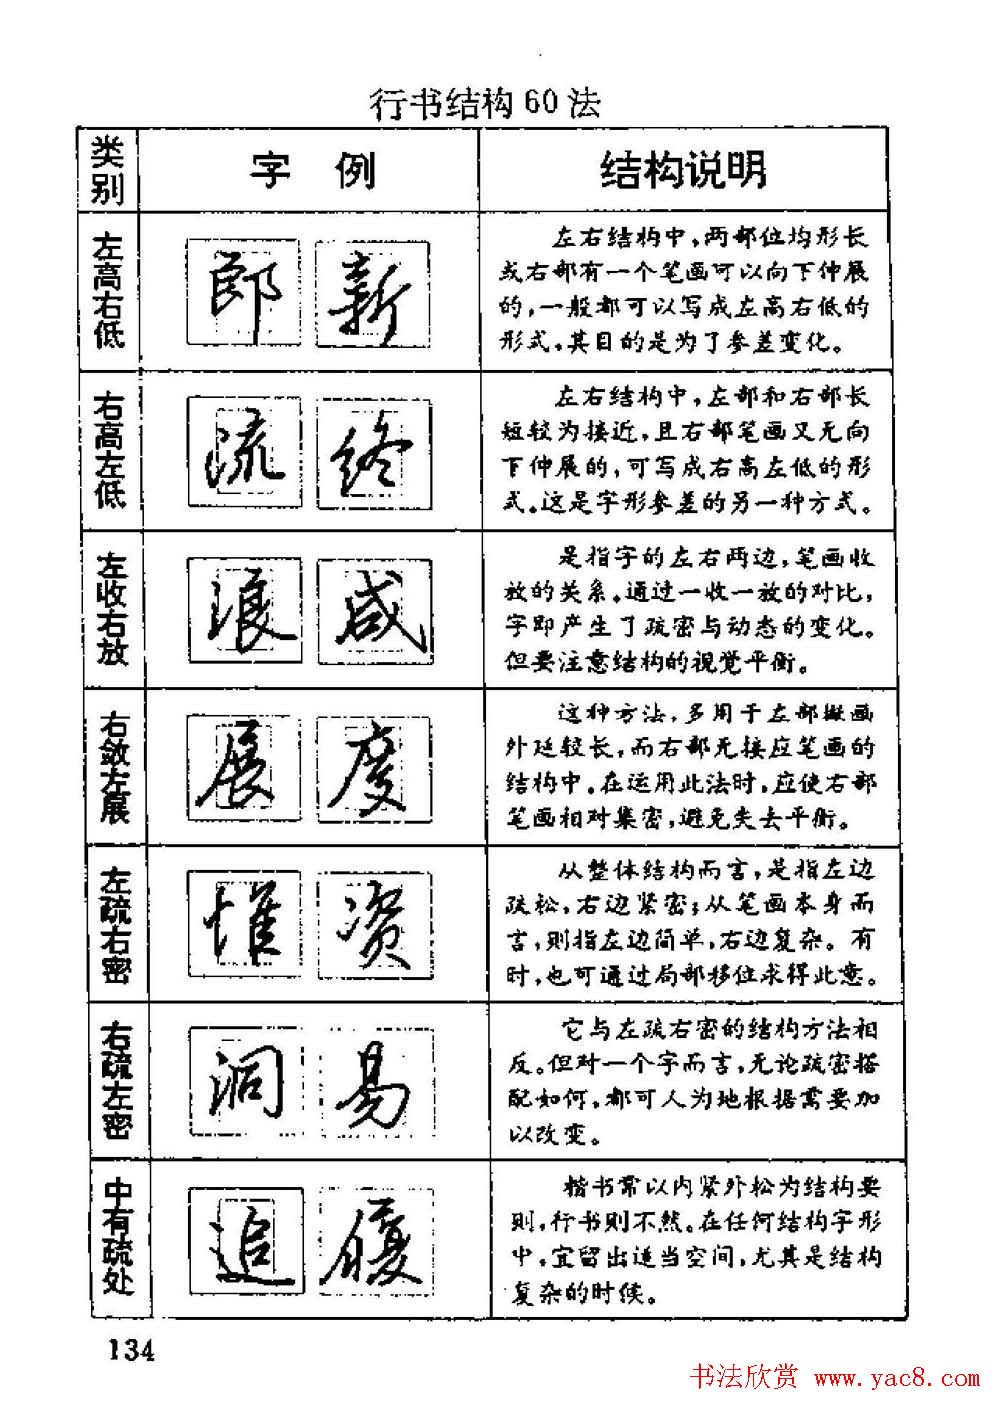 行书结构60法
类别
字例
结构说明
左高右低
郎 新
左右结构中，两部位均形长
或右部有一个笔画可以向下伸展
的，一般都可以写成左高右低的
形式，其目的是为了参差变化。
右高左低
流 终
左右结构中，左部和右部长
短较为接近，且右部笔画又无向
下伸展的，可写成右高左低的形
式。这是字形参差的另一种方式。
左收右放
浪 咸
是指字的左右两边，笔画收
放的关系。通过一收一放的对比，
字即产生了疏密与动态的变化。
但要注意结构的视觉平衡。
右敛左展
展 度
这种方法，多用于左部撇画
外延较长，而右部无接应笔画的
结构中。在运用此法时，应使右部
笔画相对集密，避免失去平衡。
左疏右密
惟 资
从整体结构而言，是指左边
疏松，右边紧密；从笔画本身而
言，则指左边简单，右边复杂。有
时，也可通过局部移位求得此意。
右疏左密
洞 易
它与左疏右密的结构方法相
反。但对一个字而言，无论疏密搭
配如何，都可人为地根据需要加
以改变。
中有疏处
追
楷书常以内紧外松为结构要
则，行书则不然。在任何结构字形
中，宜留出适当空间，尤其是结构
复杂的时候。
134
书法欣赏 www.yac8.com